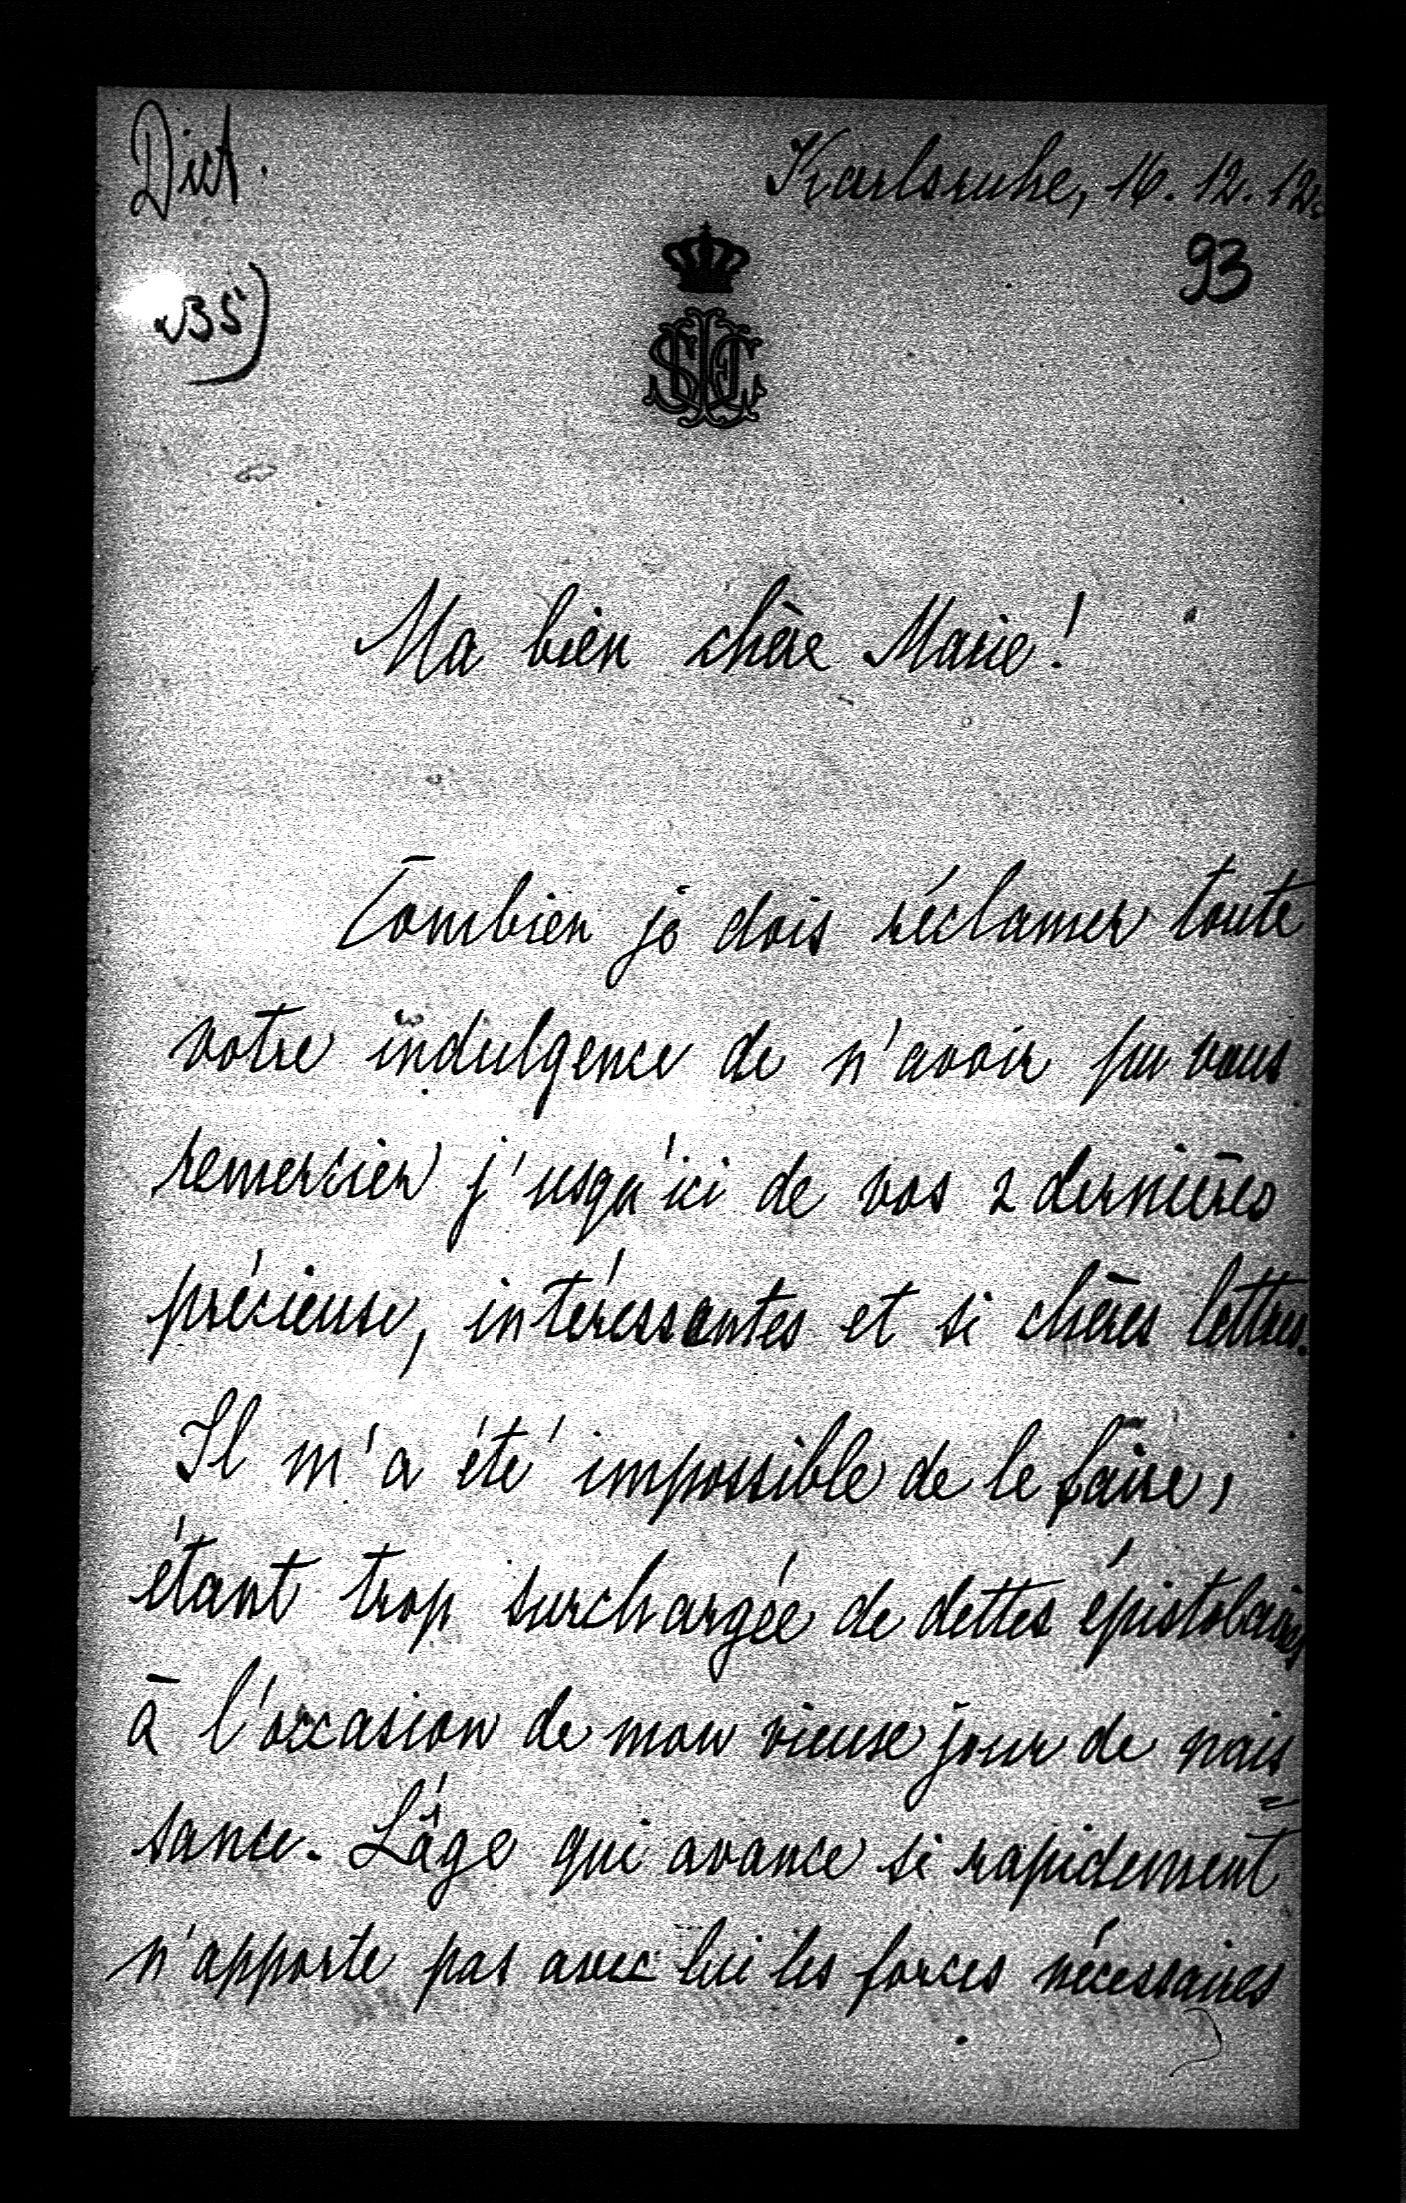 Dict. Karlsruhe, 16. 12. 12.
93
35)
Ma bien chère Marie!
Combien je dois réclamer toute
votre indulgence de n'avoir pu vous
remercier j'usqu'ici de vos 2 dernières
précieuse, intéressantes et si chères lettres.
Il m'a été impossible de le faire,
étant trop surchargée de dettes épistolaires
à l'occasion de mon vieux jour de nais
sance. L'âge qui avance si rapidement
n'apporte pas avec lui les forces nécessaires